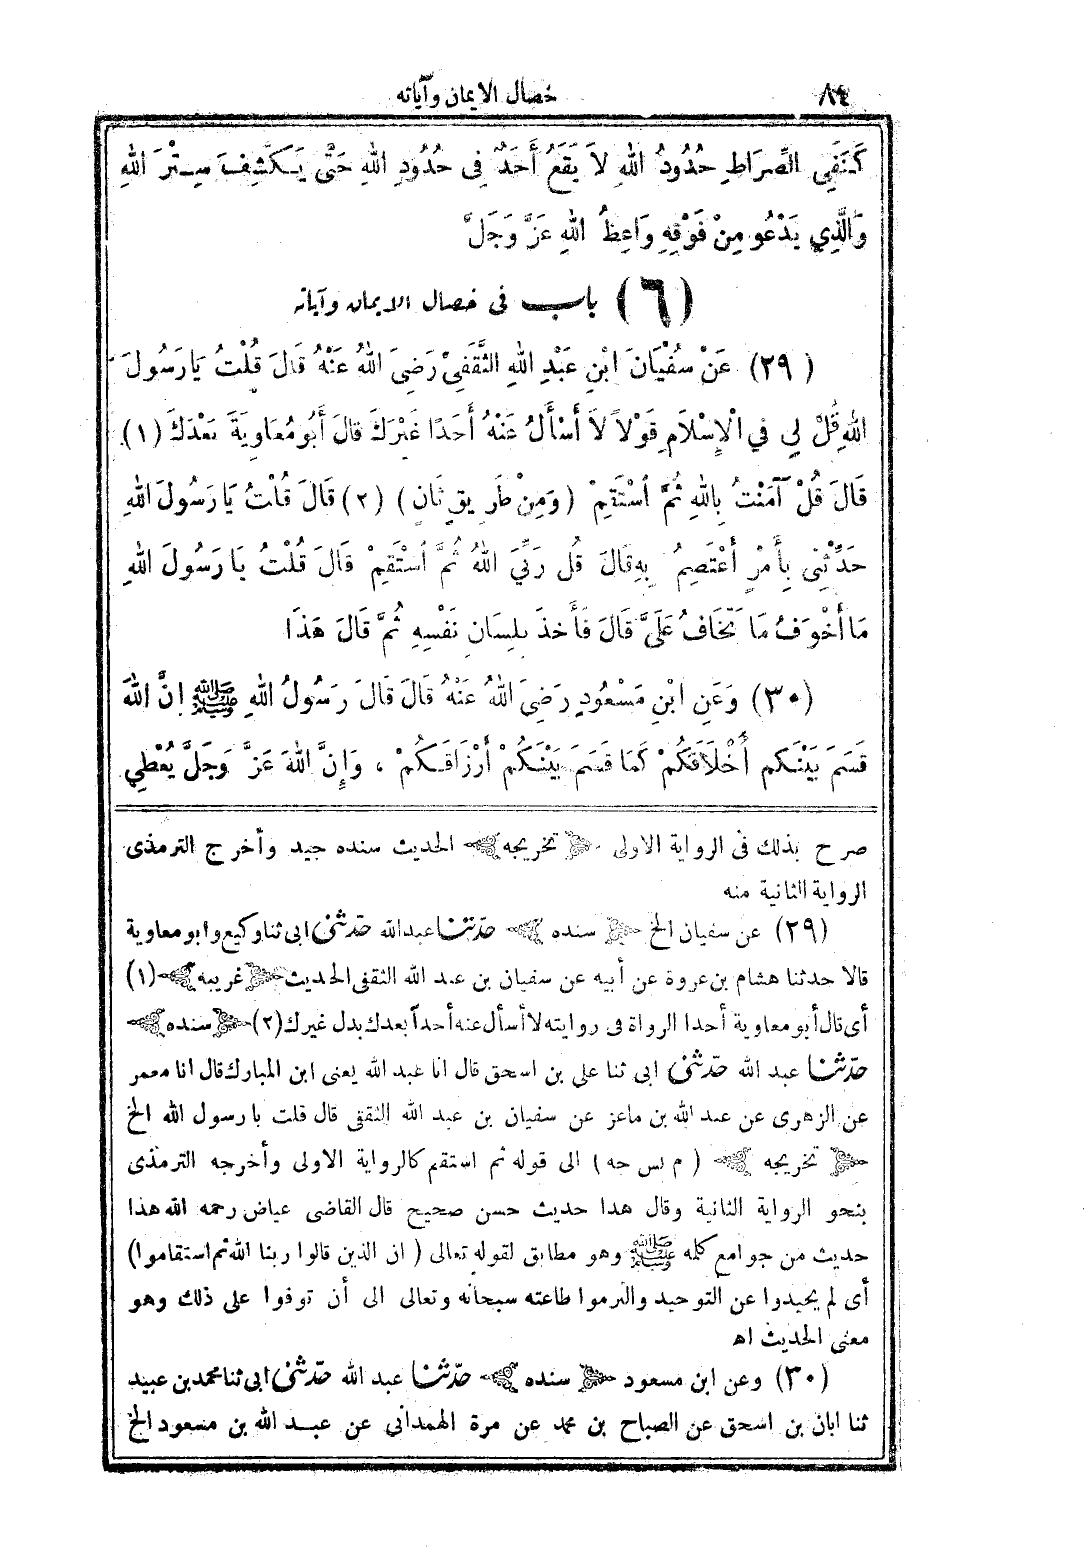 ٨٤ خصال الايمان وآياته
كَنَفَىِ الصِّرَاطِ حُدُودُ اللهِ لاَ يَقَعُ أَحَدٌ فِى حُدُودِ اللهِ حَتَّى يَكْشِفَ سِتْرَ اللهِ
وَالَّذِي يَدْعُو مِنْ فَوْقِهِ وَاعِظُ اللهِ عَزَّ وَجَلَّ
(٦) باب فى خصال الايمان وآياته
(٢٩) عَنْ سُفْيَانَ ابْنِ عَبْدِ اللهِ الثَّقَفِىْ رَضِىَ اللهُ عَنْهُ قَالَ قُلْتُ يَارَسُولَ
اللهِ قُلْ لِي فِي الْإِسْلَامِ قَوْلاً لاَ أَسْأَلُ عَنْهُ أَحَدًا غَيْرَكَ قَالَ أَبُو مُعَاوِيَةَ بَعْدَكَ (١)
قَالَ قُلْ آمَنْتُ بِاللهِ ثُمَّ اسْتَقِمْ (وَمِنْ طَرِيقٍ ثَانٍ) (٢) قَالَ قُلْتُ يَارَسُولَ اللهِ
حَدِّثْنِى بِأَمْرٍ أَعْتَصِمُ بِهِ قَالَ قُل رَبِّيَ اللهُ ثُمَّ اسْتَقِمْ قَالَ قُلْتُ يَارَسُولَ اللهِ
مَا أَخْوَفُ مَا تَخَافُ عَلَىَّ قَالَ فَأَخَذَ بِلِسَانِ نَفْسِهِ ثُمَّ قَالَ هَذَا
(٣٠) وَعَنِ ابْنِ مَسْعُودٍ رَضِىَ اللهُ عَنْهُ قَالَ قَالَ رَسُولُ اللهِ ﷺ إِنَّ اللهَ
قَسَمَ بَيْنَكُم أَخْلَاقَكُمْ كَمَا قَسَمَ بَيْنَكُمْ أَرْزَاقَكُمْ ، وَإِنَّ اللهَ عَزَّ وَجَلَّ يُعْطِي
صرح بذلك فى الرواية الاولى ﴿تخريجه﴾ الحديث سنده جيد وأخرج الترمذى
الرواية الثانية منه
(٢٩) عن سفيان الخ ﴿سنده﴾ حدثنا عبدالله حدثنى ابى ثنا وكيع وابو معاوية
قالا حدثنا هشام بن عروة عن أبيه عن سفيان بن عبد الله الثقفى الحديث ﴿غريبه﴾ (١)
أى قال أبو معاوية أحدا الرواة فى روايته لا أسأل عنه أحداً بعدك بدل غيرك (٢) ﴿سنده﴾
حدّثنا عبد الله حدّثنى ابى ثنا على بن اسحق قال انا عبد الله يعنى ابن المبارك قال انا معمر
عن الزهرى عن عبد الله بن ماعز عن سفيان بن عبد الله الثقفى قال قلت يا رسول الله الخ
﴿تخريجه﴾ (م نس جه) الى قوله ثم استقم كالرواية الاولى وأخرجه الترمذى
بنحو الرواية الثانية وقال هدا حديث حسن صحيح قال القاضى عياض رحمه الله هذا
حديث من جوامع كله ﷺ وهو مطابق لقوله تعالى (ان الذين قالوا ربنا الله ثم استقاموا)
أى لم يحيدوا عن التوحيد والتزموا طاعته سبحانه وتعالى الى أن توفوا على ذلك وهو
معنى الحديث اه
(٣٠) وعن ابن مسعود ﴿سنده﴾ حدّثنا عبد الله حدّثنى ابى ثنا محمد بن عبيد
ثنا ابان بن اسحق عن الصباح بن محمد عن مرة الهمدانى عن عبد الله بن مسعود الخ